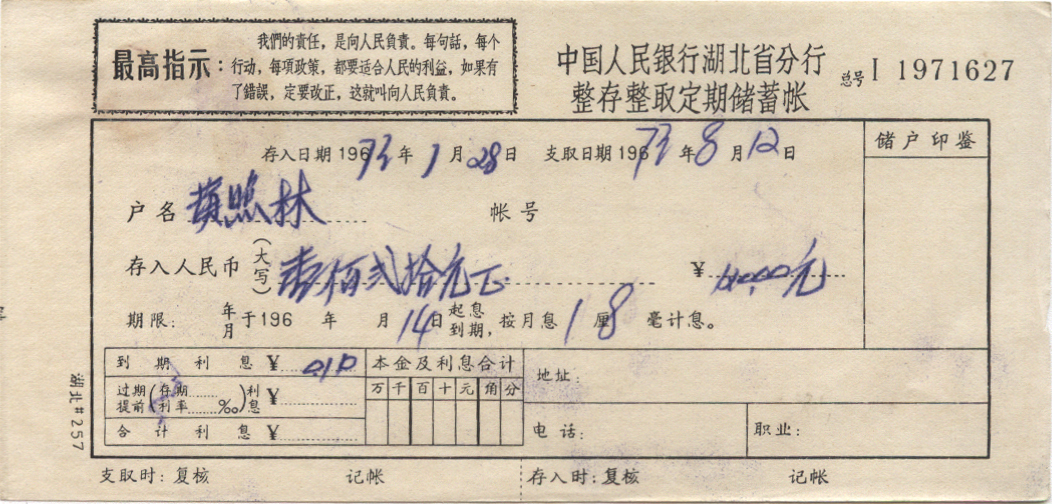 最高指示:
我們的責任，是向人民負責。每句話，每个
行动，每項政策，都要适合人民的利益，如果有
了錯誤，定要改正，这就叫向人民負責。
中国人民银行湖北省分行
整存整取定期储蓄帐
总号 I 1971627
存入日期 196 73 年 1 月 28 日 支取日期 196 73 年 8 月 12 日
储户印鉴
户名 照林 帐号
存入人民币 (大写) 壹佰弍拾元正 ¥ 元
期限: 年月于196 年 月 14 日 起息到期, 按月息 1 厘 8 毫计息。
到期利息 ¥
本金及利息合计
过期提前(存期 利率 ‰)利息 ¥
万 千 百 十 元 角 分
合计利息 ¥
地址:
电话: 职业:
支取时: 复核 记帐 存入时: 复核 记帐
湖北#257